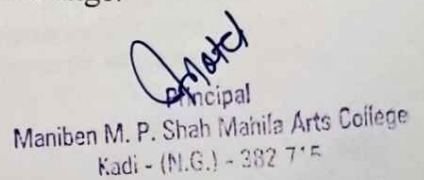 Principal
Maniben M. P. Shah Mahila Arts College
Kadi - (N.G.) - 382 715